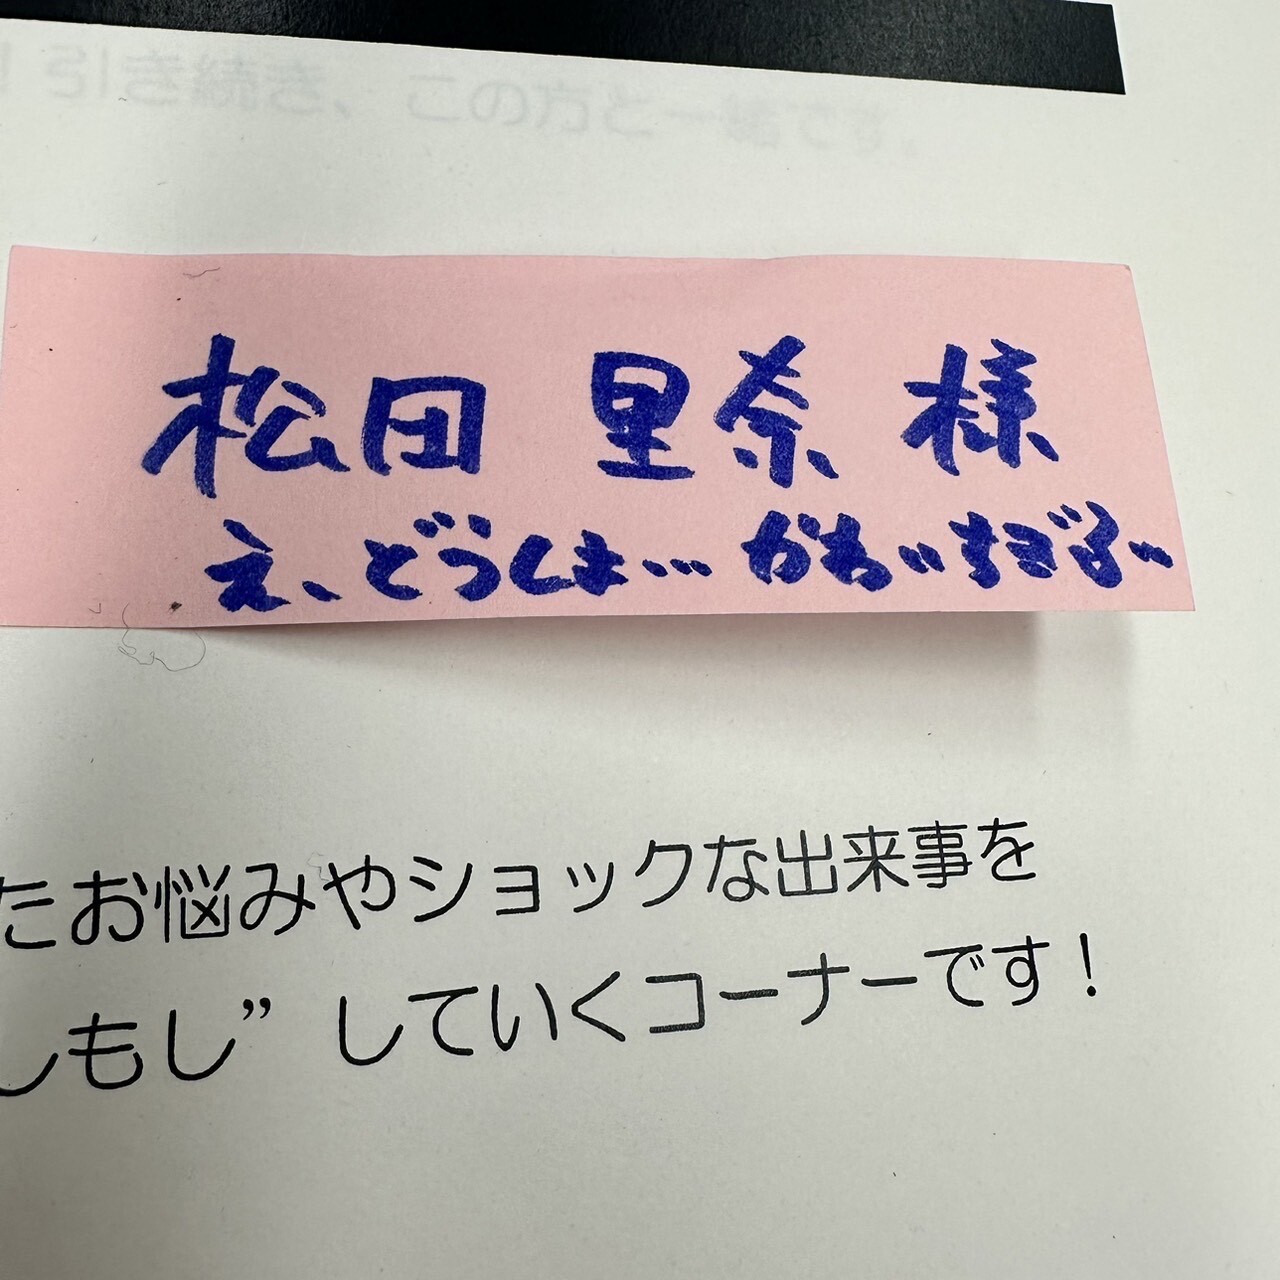 ！引き続き、この方と一緒です。
松田 里奈 様
え、どうしま… かわいすぎる…
たお悩みやショックな出来事を
しもし”していくコーナーです！